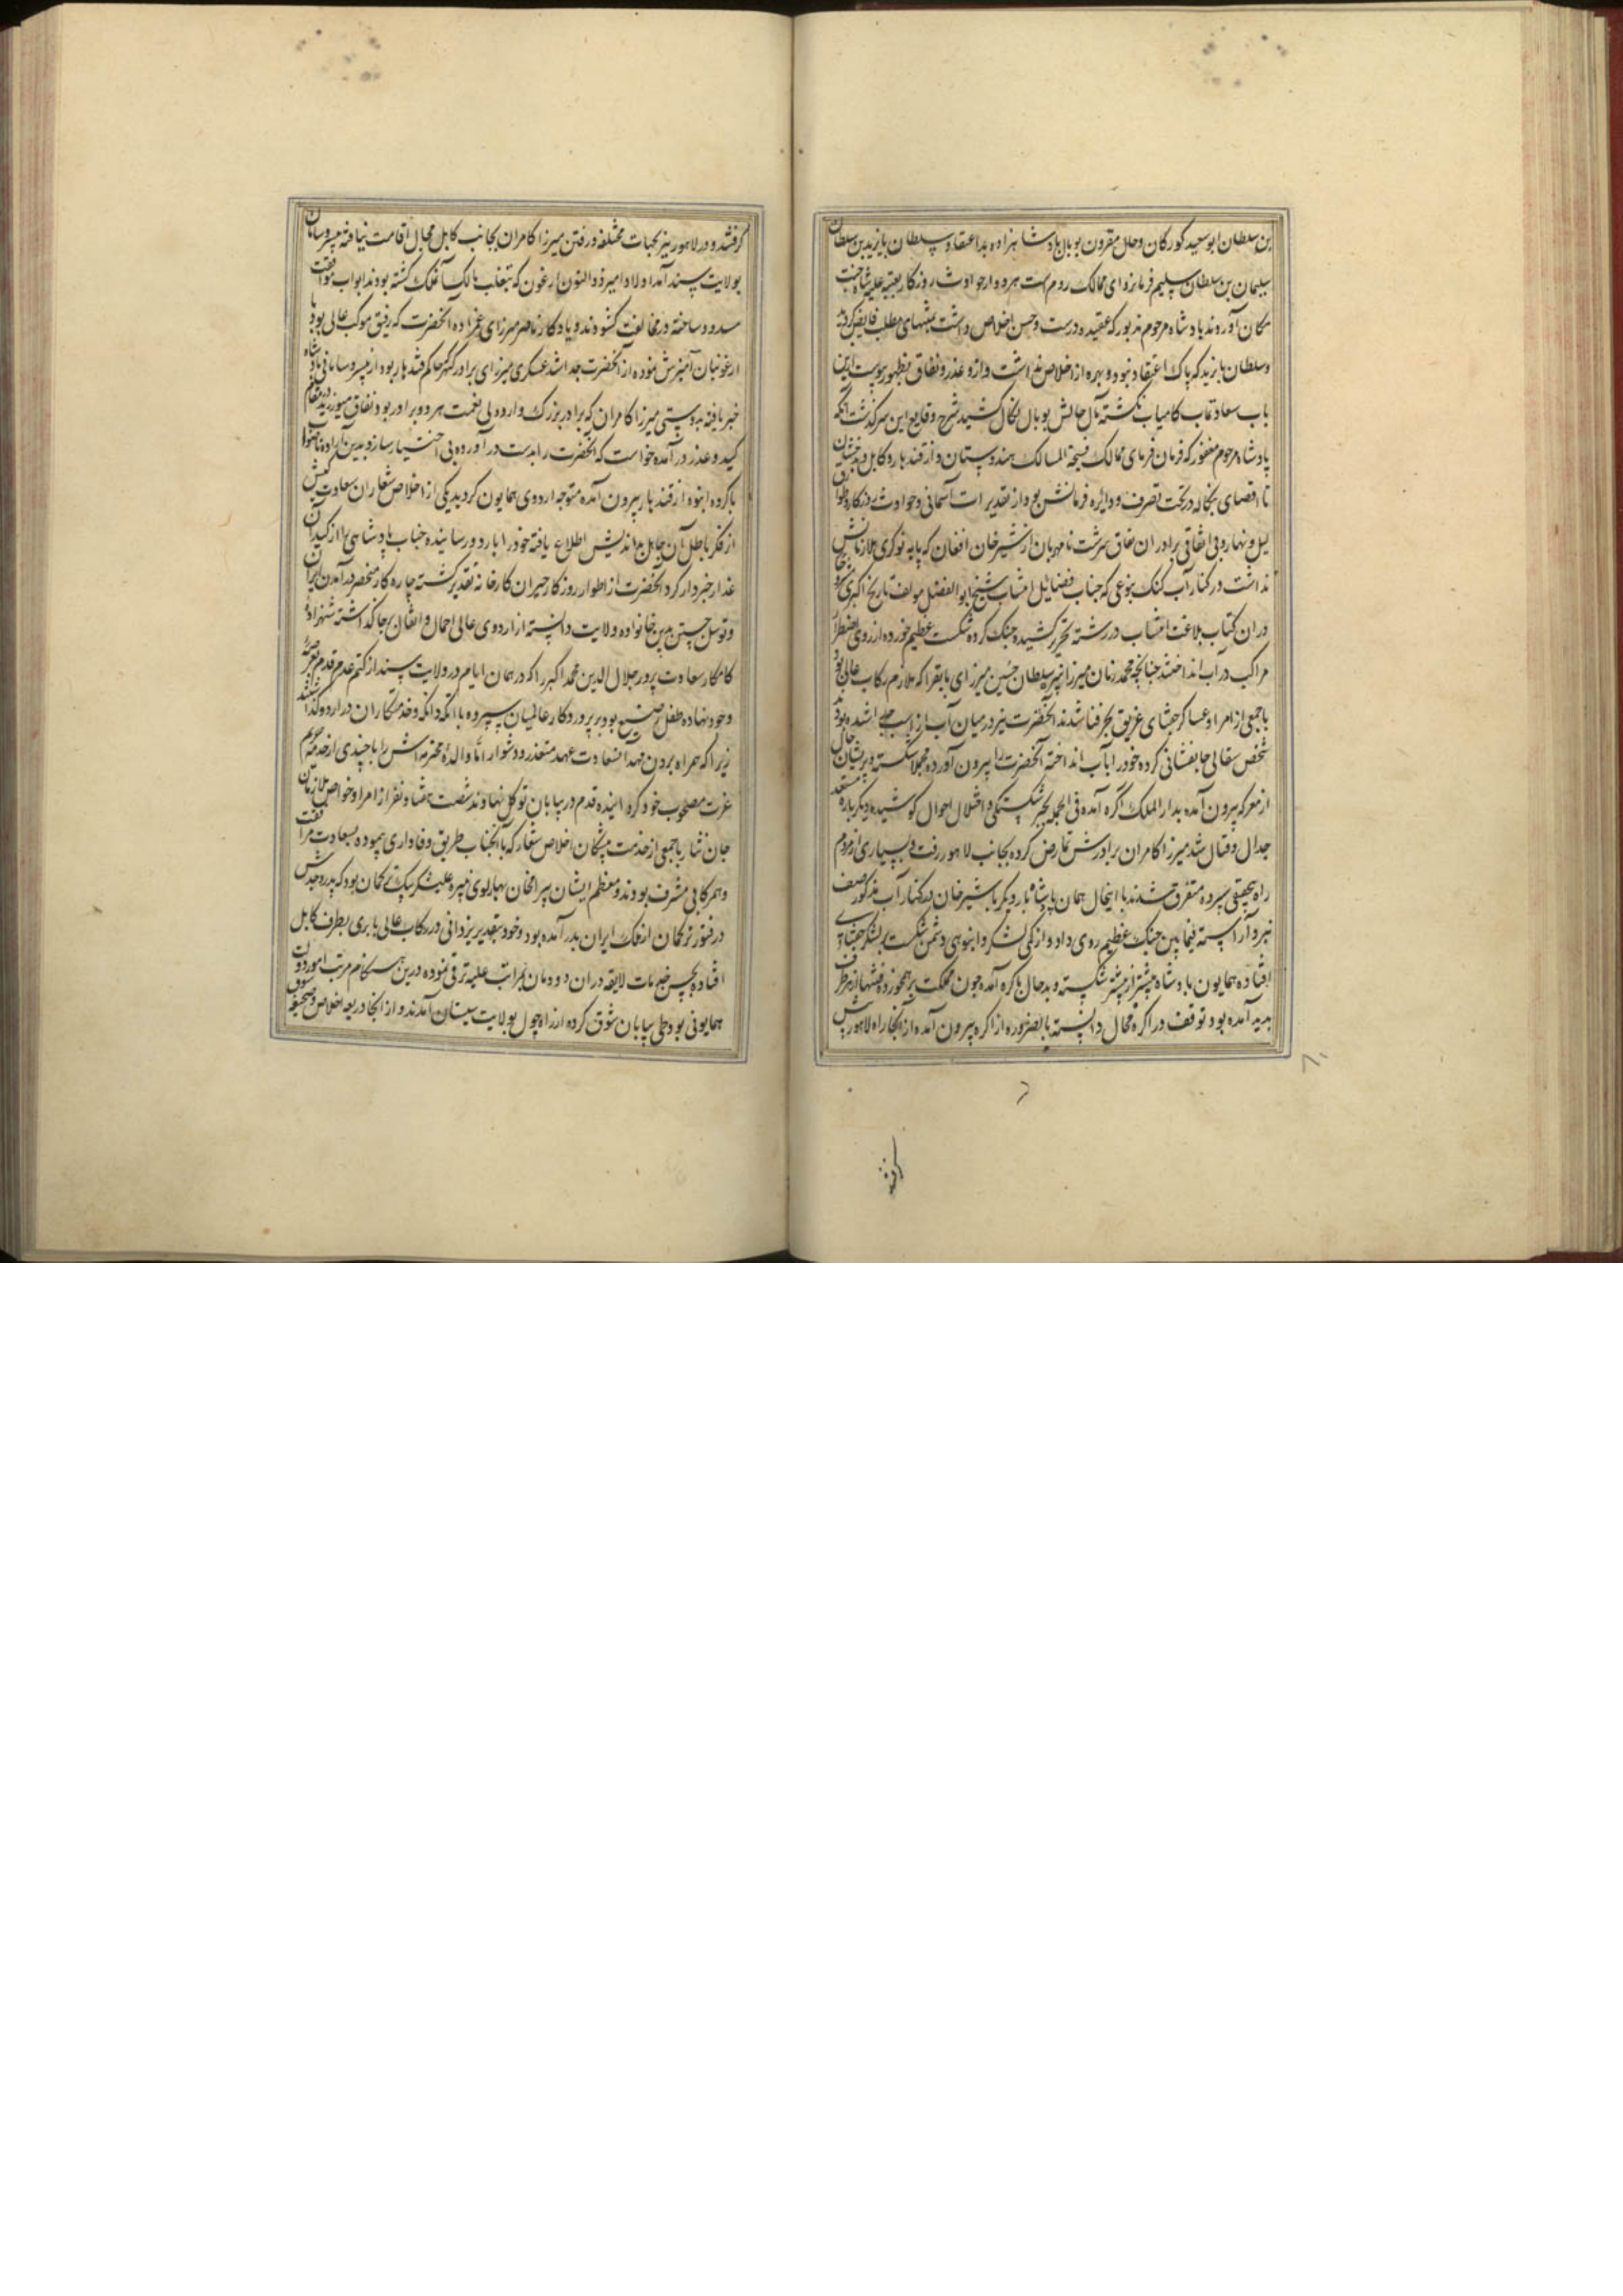 بن سلطان ابوسعید کورکان و حال مقرون بوبال پادشاهزاده بداعتقاد سلطان بایزید بن سلطان
سلیمان بن سلطان سلیم فرمانروای ممالک روم است هر دو از حوادث روزکار بعتبه علیه شاه جنت
مکان آوردند پادشاه مرحوم مذبور که عقیده درست و حسن اخلاص داشت بمنتهای مطلب فایض کردید
و سلطان بایزید که پاک اعتقاد نبود و بهره از اخلاص نداشت و ازو غدر و نفاق بظهور پیوست ازین
باب سعادتماب کامیاب نکشته مآل حالش بوبال نکال کشید شرح وقایع این سرکذشت آنکه
پادشاه مرحوم مغفور که فرمان فرمای ممالک فسیحة المسالک هندوستان و از قندهار و کابل و بدخشان
تا اقصای بنکاله در تحت تصرف و دایره فرمانش بود از تقدیرات آسمانی و حوادث روزکار و طوارق
لیل و نهار و بی اتفاقی برادران نفاق سرشت نامهربان از شیرخان افغان که پایه نوکری ملازمانش
نداشت در کنار آب کنک بنوعی که جناب فضایل انتساب شیخ ابوالفضل مولف تاریخ اکبری
دران کتاب بلاغت انتساب در رشته تحریر کشیده جنک کرده شکست عظیم خورده از روی اضطرار
مراکب در آب انداختند چنانچه محمد زمان میرزا نبیره سلطان حسین میرزای بایقرا که ملازم رکاب عالی بود
با جمعی از امرا و عساکر جغتای غریق بحر فنا شدند آنحضرت نیز در میان آب از اسب جدا شده بودند
شخص سقائی جانفشانی کرده خود را بآب انداخته آنحضرت را بیرون آورده مجملا شکسته و پریشان حال
از معرکه بیرون آمده بدار الملک اکره آمده فی الجمله بجبر شکستکی و اختلال احوال کوشیده دیکرباره مستعد
جدال و قتال شد میرزا کامران برادرش تمارض کرده بجانب لاهور رفت و بسیاری از مردم
راه بیحقیقتی سپرده متفرق شدند با اینحال همایون پادشاه بار دیکر با شیرخان در کنار آب مذکور صف
نبرد آراسته فیمابین جنک عظیم روی داد و از کمی لشکر و انبوهی دشمن شکست بر لشکر جغتای
افتاده همایون پادشاه بیشتر از پیشتر شکسته و بدحال باکره آمده چون مملکت برهمخورده فتنها از هر طرف
پدید آمده بود توقف در اکره محال دانسته بالضروره از اکره بیرون آمده از آنجا راه لاهور پیش
کرفتند
کرفتند و در لاهور نیز بجهات مختلفه و رفتن میرزا کامران بجانب کابل مجال اقامت نیافته بیسر و سامان
بولایت سند آمد اولاد امیر ذوالنون ارغون که بتغلب مالک آنملک کشته بودند ابواب موافقت
مسدود ساخته در مخالفت کشودند و یادکار ناصر میرزای عمزاده آنحضرت که رفیق موکب عالی بود با
ارغونیان آمیزش نموده از آنحضرت جدا شد عسکری میرزای برادر کهتر حاکم قندهار بود از بیسر و سامانی پادشاه
خبر یافته بدوستی میرزا کامران که برادر بزرک و ارود لی نعمت هر دو برادر بود نفاق میورزید در مقام
کید و غدر درآمده خواست که آنحضرت را بدست درآورده بی اختیار سازد بدین اراده ناصواب
با کروه انبوه از قندهار بیرون آمده متوجه اردوی همایون کردید یکی از اخلاص شعاران سعادت کیش
از فکر باطل آن جاهل بداندیش اطلاع یافته خود را باردو رسانیده جناب پادشاهی را از کید آن
غدار خبردار کرد آنحضرت از اطوار روزکار حیران کارخانه تقدیر کشته چاره کار منحصر در آمدن ایران
و توسل جستن بدین خانواده ولایت دانسته از اردوی عالی احمال و اثقال بر جا کذاشته شهزاده
کامکار سعادت پرور جلال الدین محمد اکبر را که در همان ایام در ولایت سند از کتم عدم قدم بعرصه
وجود نهاده طفل رضیع بود بپروردکار عالمیان سپرده با اتکه و انکه و خدمتکاران در اردو کذاشتند
زیرا که همراه بردن مهد آنسعادت عهد متعذر و دشوار امّا والدهٔ محترمه اش را با چندی از خدمه حریم
عزت مصحوب خود کردانیده قدم در بیابان توکل نهادند شصت هفتاد نفر از امرا و خواص ملازمان
جان نثار با جمعی از خدمت پیشکان اخلاص شعار که با آنجناب طریق وفاداری پیموده بسعادت مرافقت
و همرکابی مشرف بودند و معظم ایشان بیرامخان بهارلوی نبیره علیشکر بیک ترکمان بود که پدر و جدش
در فتور ترکمان از ملک ایران بدر آمده بود و خود بتقدیر یزدانی در رکاب عالی بابری بطرف کابل
افتاده بحسن خدمات لایقه دران دودمان بمراتب علیه ترقی نموده درین هنکام مرتب امور دولت
همایونی بود طی بیابان شوق کرده از راه چول بولایت سیستان آمدند و از آنجا ذریعه اخلاص و صحیفه